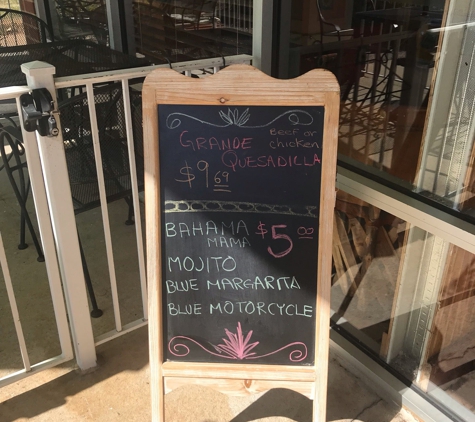 Beef or
GRANDE chicken
QUESADILLA
$9.69
BAHAMA $5.00
MAMA
MOJITO
BLUE MARGARITA
BLUE MOTORCYCLE